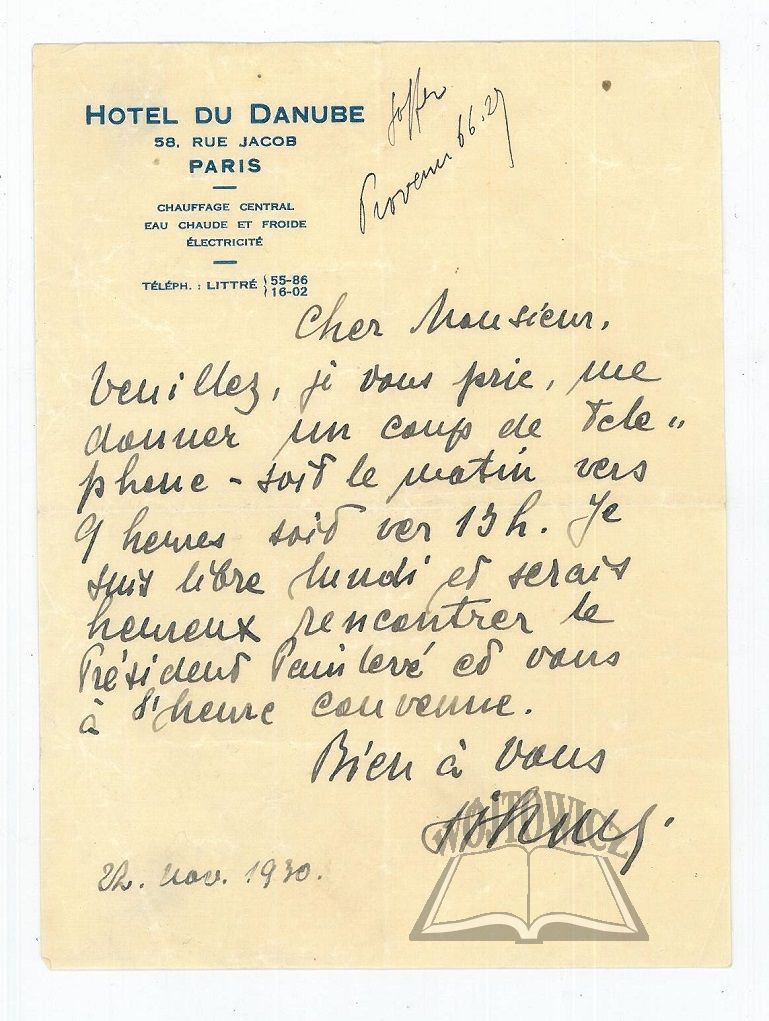 HOTEL DU DANUBE
58, RUE JACOB
PARIS
CHAUFFAGE CENTRAL
EAU CHAUDE ET FROIDE
ÉLECTRICITÉ
TÉLÉPH. : LITTRÉ { 55-86
16-02
66.27
Cher Monsieur,
Veuillez, je vous prie, me
donner un coup de tele„
phone – soit le matin vers
9 heures soit ver 13h. Je
suis libre lundi et serais
heureux rencontrer le
Président Painlevé et vous
à l'heure convenue.
Bien à vous
22. nov. 1930.
WÓJTOWICZ